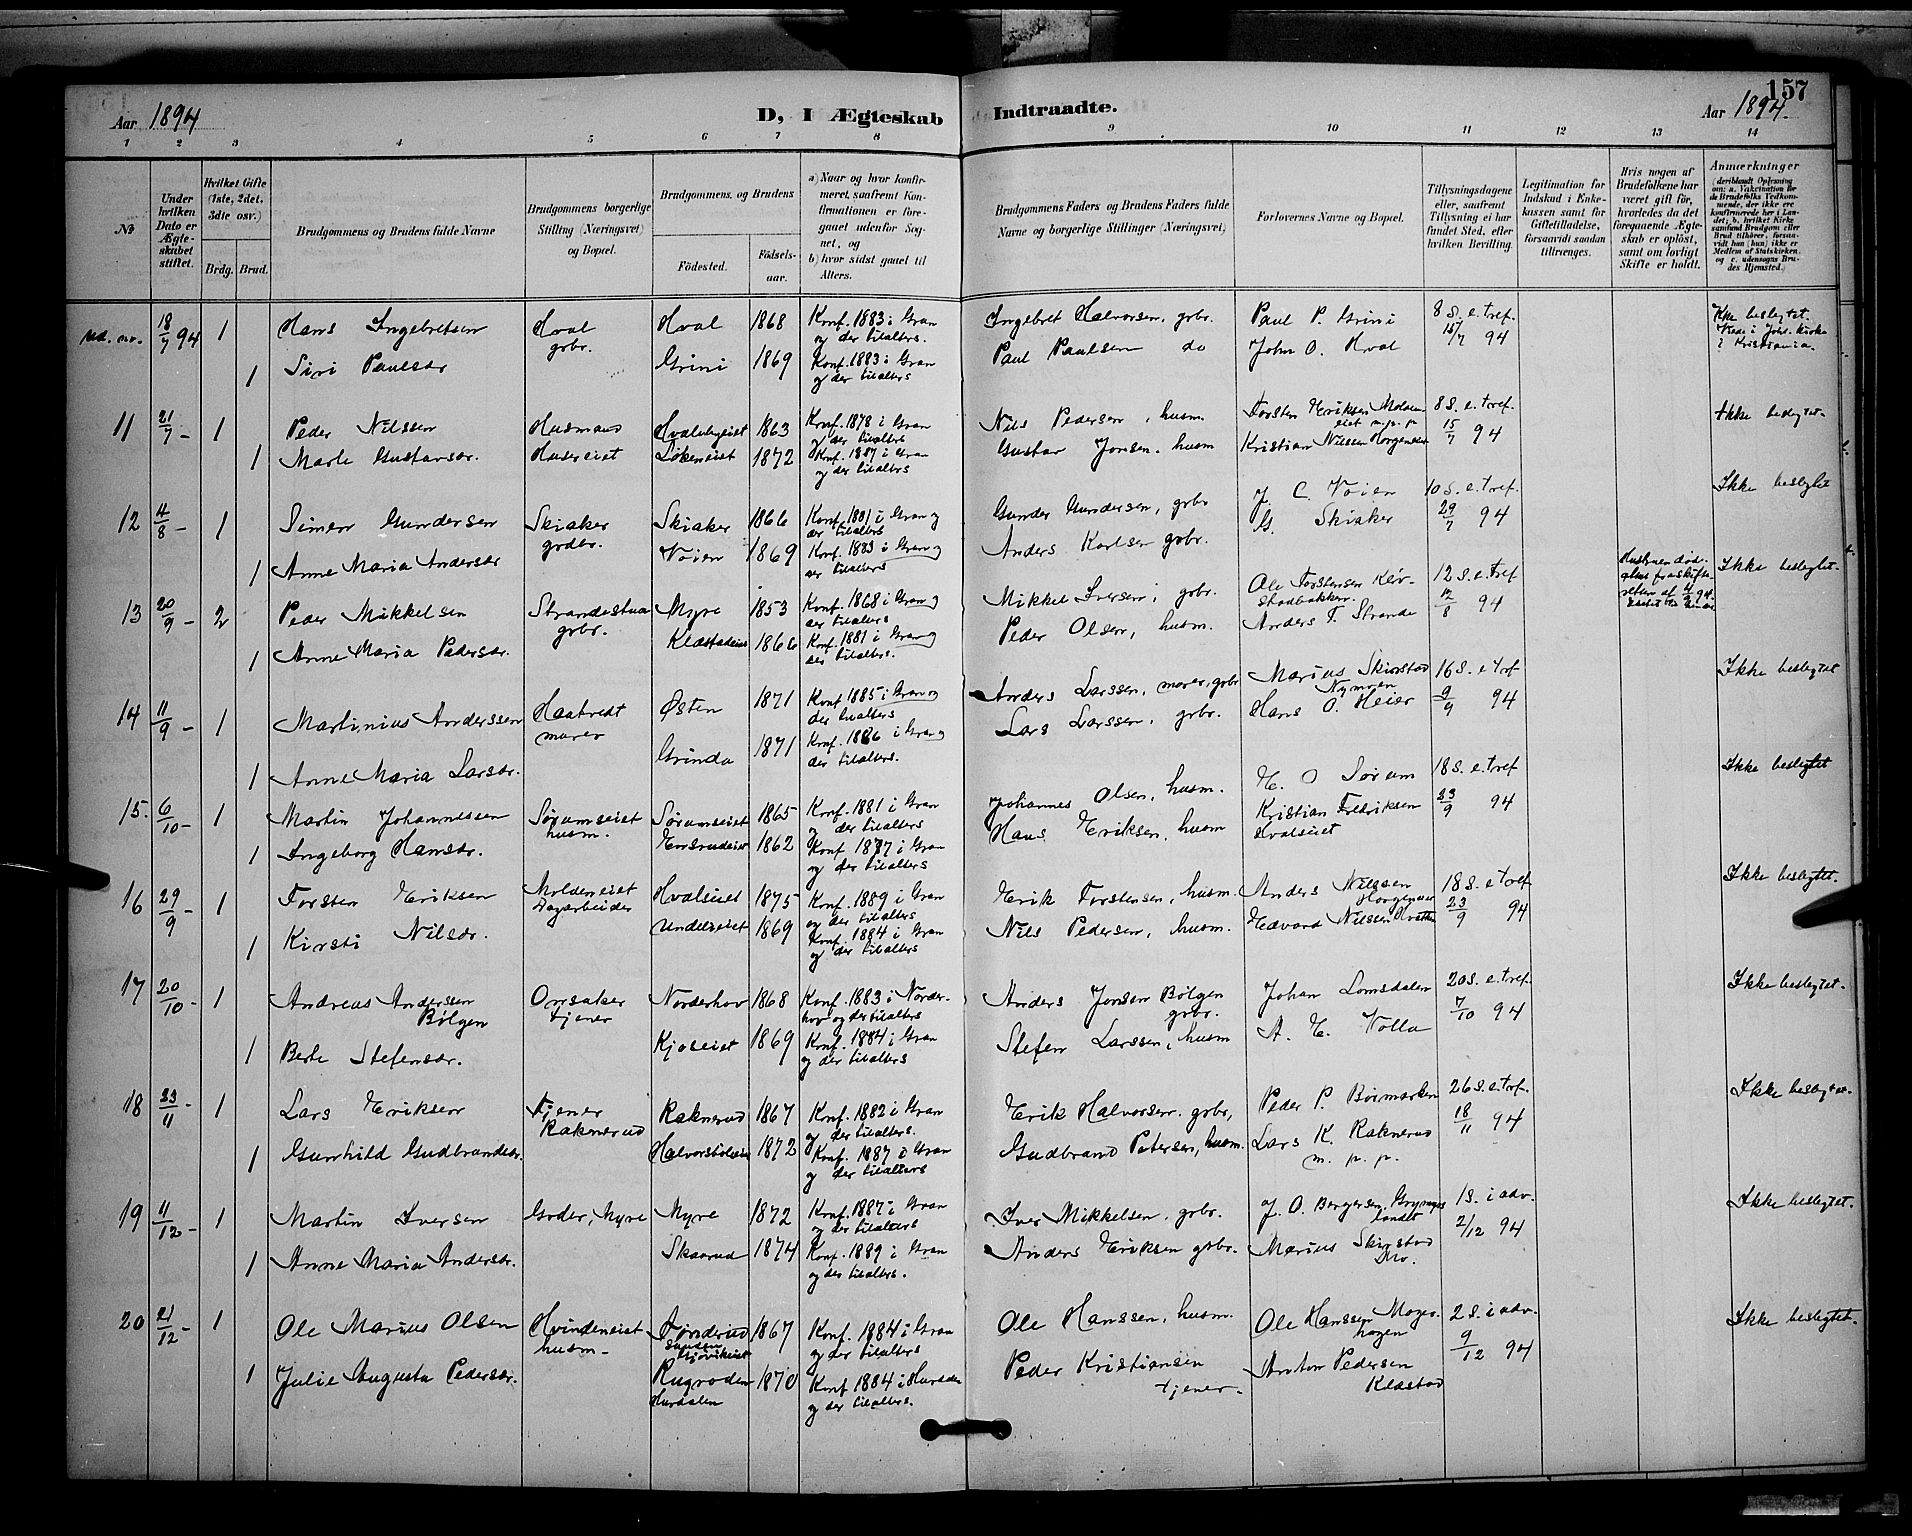 157
Aar 1894
D, I Ægteskab Indtraadte.
Aar 1894.
1 2 3 4 5 6 7 8 9 10 11 12 13 14
No
Under hvilken Dato er Ægteskabet stiftet.
Hvilket Gifte (1ste, 2det, 3die osv.)
Brdg. Brud.
Brudgommens og Brudens fulde Navne
Brudgommens borgerlige Stilling (Næringsvei) og Bopæl.
Brudgommens og Brudens
Fødested.
Fødselsaar.
a) Naar og hvor konfirmeret, saafremt Konfirmationen er foregaaet udenfor Sognet, og
b) hvor sidst gaaet til Alters.
Brudgommens Faders og Brudens Faders fulde Navne og borgerlige Stillinger (Næringsvei)
Forlovernes Navne og Bopæl.
Tillysningsdagene eller, saafremt Tillysning ei har fundet Sted, efter hvilken Bevilling.
Legitimation for Indskud i Enkekassen samt for Giftetilladelse, forsaavidt saadan tiltrænges.
Hvis nogen af Brudefolkene har været gift før, hvorledes da det foregaaende Ægteskab er opløst, samt om lovligt Skifte er holdt.
Anmærkninger (deriblandt Oplysning om: a. Vakcination for de Brudefolks Vedkommende, der ikke ere konfirmerede her i Landet; b. hvilket Kirkesamfund Brudgom eller Brud tilhører, forsaavidt han (hun) ikke er Medlem af Statskirken, og c. udensogns Brudes Hjemsted.)
18/7 94 1 Hans Ingebretsen Hval grbr. Hval 1868 Konf. 1883 i Gran og der tilalters. Ingebret Halvorsen, grbr. Paul P. Grini 8 S. e. tref. 15/7 94 Ikke beslegtet.
1 Siri Paulsdr Grini 1869 Konf. 1883 i Gran og der tilalters Paul Paulsen do John O. Hval
11 21/7 - 1 Peder Nilssen Husmand Hvalsbyeiet 1863 Konf. 1878 i Gran og der tilalters Nils Pedersen, husm. Torsten Eriksen m. p. p. 8 S. e. tref. 15/7 94 Ikke beslegtet.
1 Marte Gustavsdr. Husereiet Løkeneiet 1872 Konf. 1887 i Gran og der tilalters Gustav Jonsen, husm Kristian Nilssen
12 4/8 - 1 Simen Gundersen Skiaker grdbr. Skiaker 1866 Konf. 1881 i Gran og der tilalters Gunder Gundersen, grbr J. C. Vøien 10 S. e. tref. 29/7 94 Ikke beslegtet
1 Anne Maria Andersdr Vøien 1869 Konf. 1883 i Gran og der tilalters Anders Karlsen grbr. G. Skiaker
13 20/9 - 2 Peder Mikkelsen Strandestuen grbr. Myre 1853 Konf. 1868 i Gran og der tilalters Mikkel Iversen, grbr. Ole Torstensen 12 S. e. tref 12/8 94 Ikke beslegtet.
1 Anne Maria Pedersdr. Klæstadeiet 1866 Konf. 1881 i Gran og der tilalters. Peder Olsen, husm. Anders T. Strande
14 11/9 - 1 Martinius Anderssen Haatvedt murer Østen 1871 Konf. 1885 i Gran og der tilalters Anders Larssen, murer, grbr Marius Skirstad 16 S. e. tref 9/9 94 Ikke beslegtet
1 Anne Maria Larsdr. Grinda 1871 Konf. 1886 i Gran og der tilalters. Lars Larssen, grbr. Hans O. Heier
15. 6/10 - 1 Martin Johannessen Sørumseiet husm. Sørumseiet 1865 Konf. 1881 i Gran og der tilalters Johannes Olsen, husm. H. O Sørum 18 S. e. tref 23/9 94 Ikke beslegtet
1 Ingeborg Hansdr. 1862 Konf. 1877 i Gran og der tilalters Hans Eriksen, husm Kristian Fredriksen Hvalseiet
16 29/9 - 1 Torsten Eriksen Moldeneiet Dagarbeider Hvalseiet 1875 Konf. 1889 i Gran og der tilalters Erik Torstensen, husm. Anders Nilssen 18 S. e. tref 23/9 94 Ikke beslegtet.
1 Kirsti Nilsdr. 1869 Konf. 1884 i Gran og der tilalters Nils Pedersen, husm. Edvard Nilssen
17 20/10 - 1 Andreas Anderssen Bølgen Onsaker tjener Norderhov 1868 Konf. 1883 i Norderhov og der tilalters Anders Jonsen Bølgen grbr. Johan Lomsdalen 20 S. e. tref. 7/10 94 Ikke beslegtet.
1 Berte Stefensdr. Kjoseiet 1869 Konf. 1884 i Gran og der tilalters Stefen Larssen, husm A. E. Volla
18 23/11 - 1 Lars Eriksen Tjener Raknerud Raknerud 1867 Konf. 1882 i Gran og der tilalters. Erik Halvorsen. grbr, Peder P. Bormarken 26 S. e. tref. 18/11 94 Ikke beslegtet.
1 Gunhild Gudbrandsdr. 1872 Konf. 1887 i Gran og der tilalters Gudbrand Petersen, husm. Lars K. Raknerud m. p. p.
19 11/12 - 1 Martin Iversen Grder, Myre Myre 1872 Konf. 1887 i Gran og der tilalters Iver Mikkelsen, grbr. J. O. Bergersen 1 S. i adv. 2/12 94 Ikke beslegtet.
1 Anne Maria Andersdr. Skaarud 1874 Konf. 1889 i Gran og der tilalters. Anders Eriksen grbr. Marius Skirstad
20 21/12 - 1 Ole Marius Olsen Hvindeneiet husm. 1867 Konf. 1884 i Gran og der tilalters Ole Hanssen, husm. Ole Hanssen 2 S. i adv. 9/12 94 Ikke beslegtet.
1 Julie Augusta Pedersdr. Hurdalen 1870 Konf 1884 i Hurdalen og der tilalters. Peder Kristiansen tjener. Anton Pedersen Klæstad